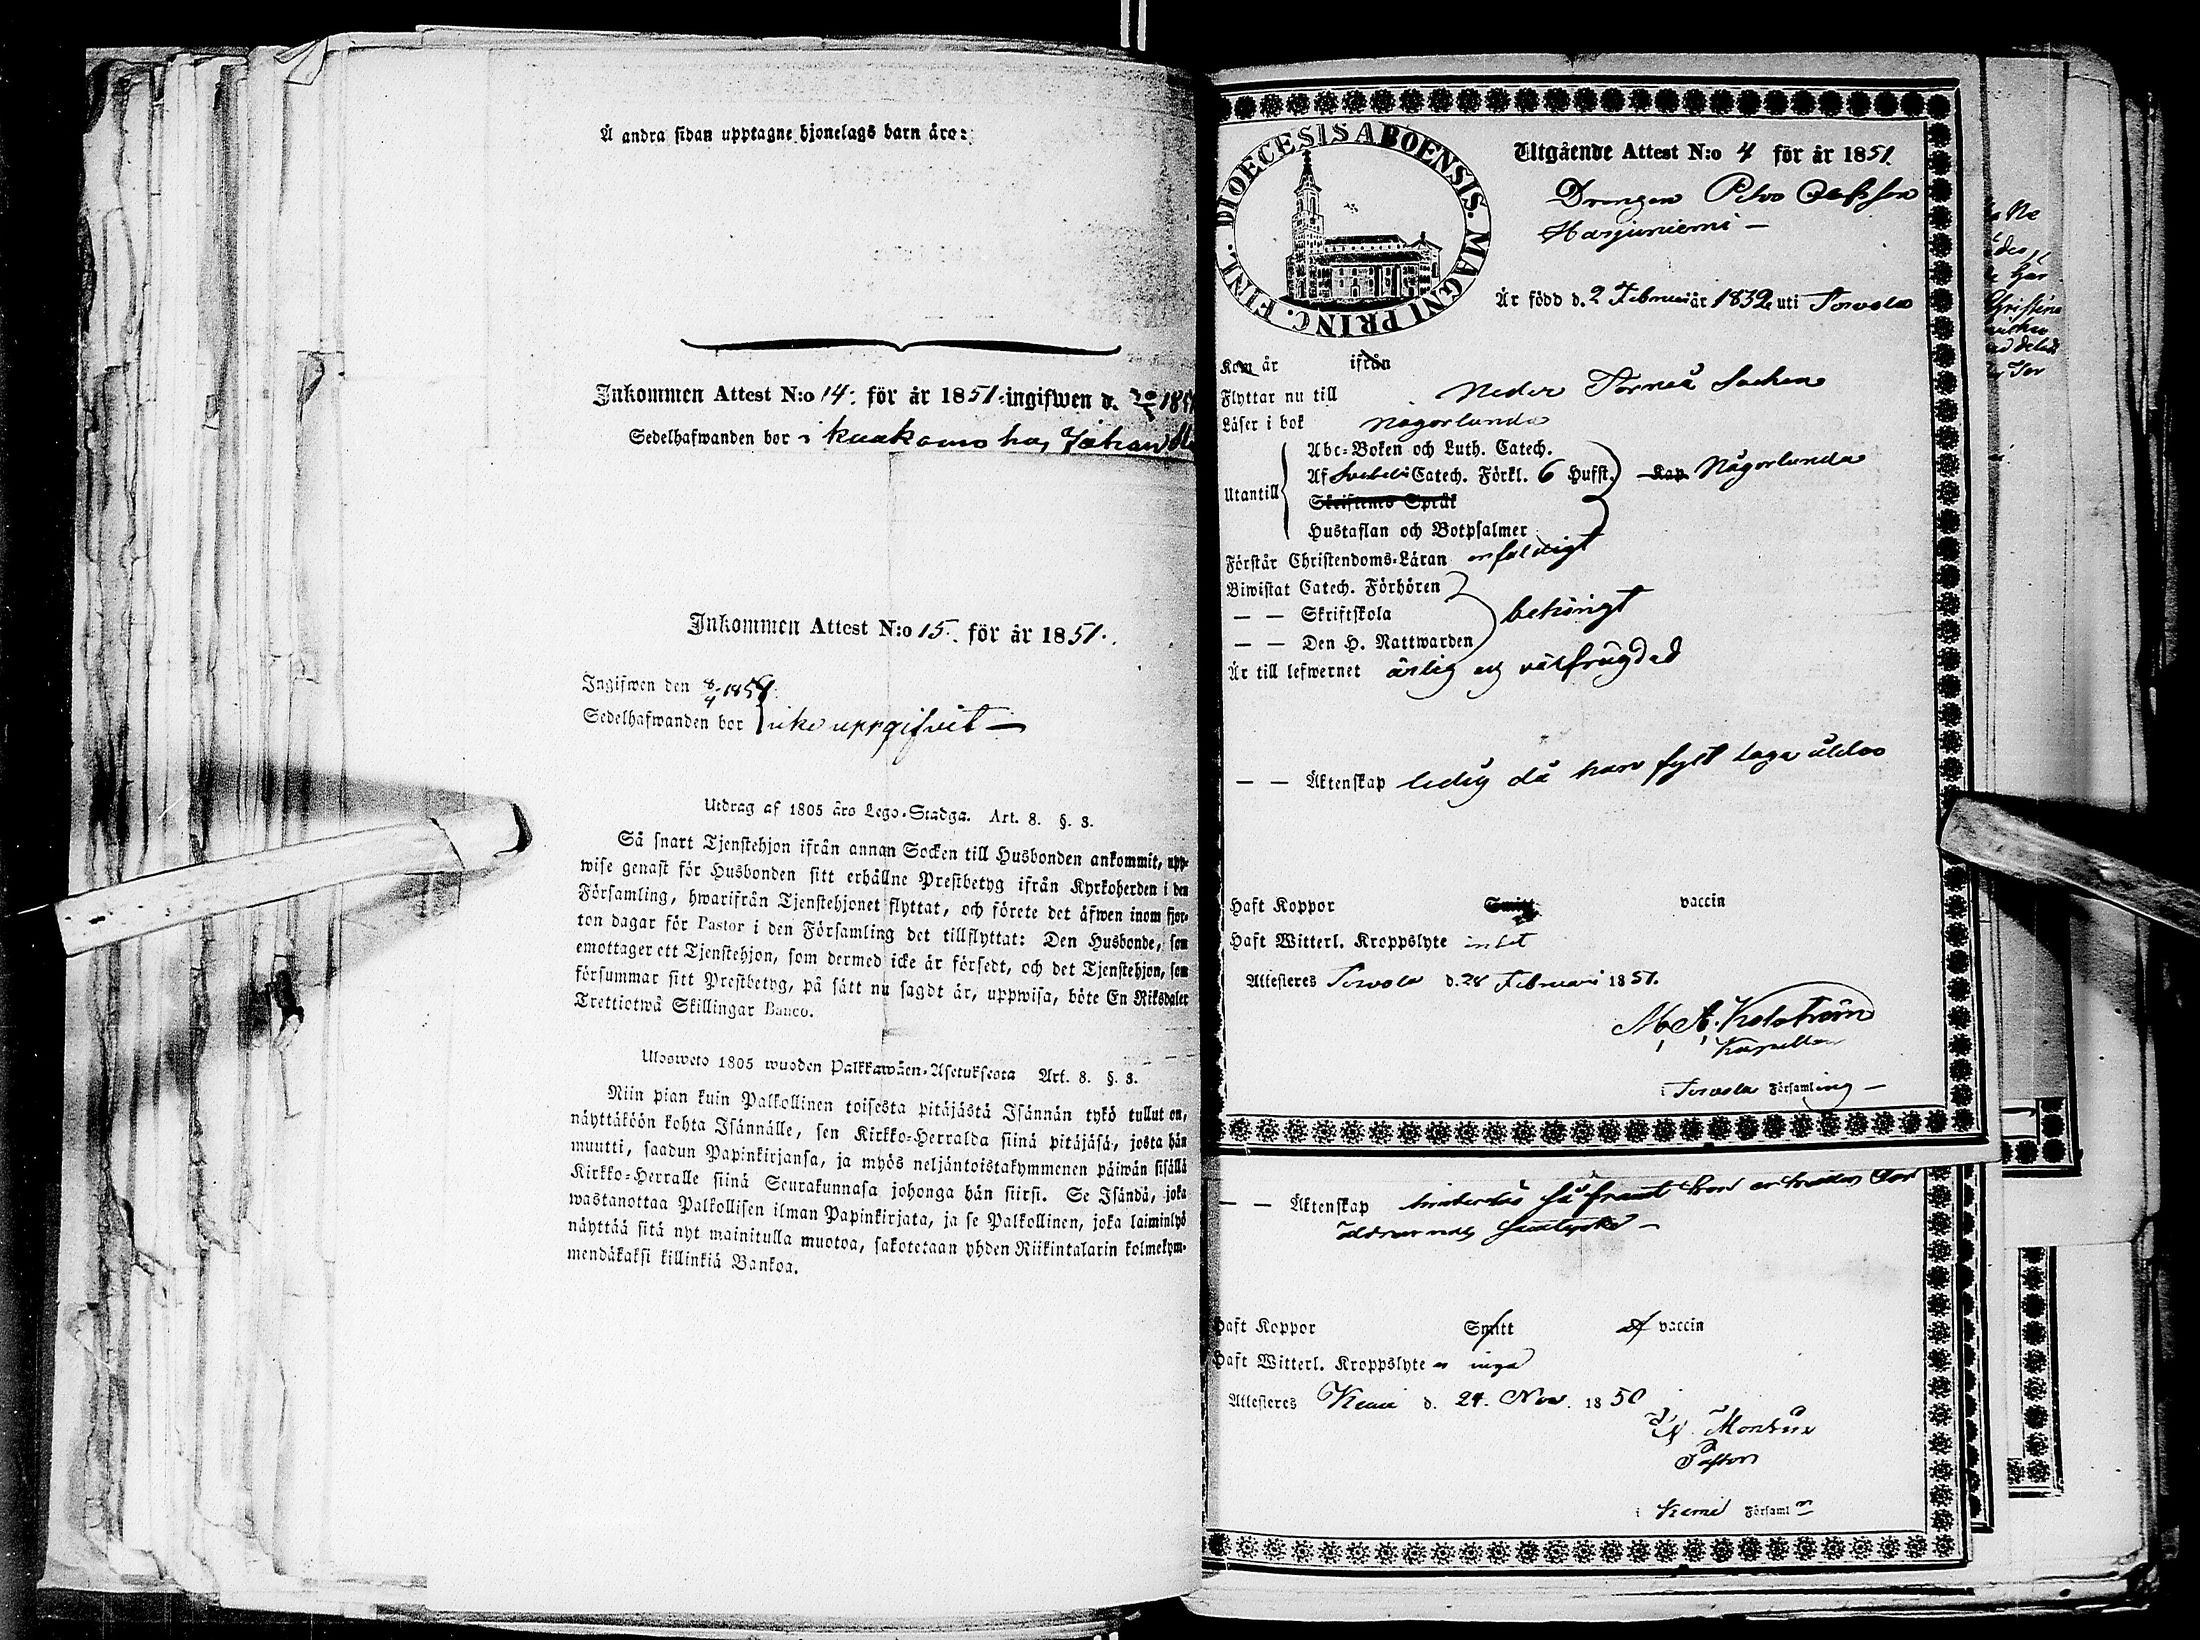 Å andra sidan upptagne hjonelags barn äro:
Inkommen Attest N:o 14. för år 1851. ingifwen d. 20/3 185
Sedelhafwanden bor i kuakamo hos Johan
Inkommen Attest N:o 15. för år 1851.
Ingifwen den 8/4 1851.
Sedelhafwanden bor icke uppgifvit —
Utdrag af 1805 års Lego-Stadga. Art. 8. §. 3.
Så snart Tjenstehjon ifrån annan Socken till Husbonden ankommit, upp-
wise genast för Husbonden sitt erhållne Prestbetyg ifrån Kyrkoherden i den
Församling, hwarifrån Tjenstehjonet flyttat, och förete det äfwen inom fjor-
ton dagar för Pastor i den Församling det tillflyttat: Den Husbonde, som
emottager ett Tjenstehjon, som dermed icke är försedt, och det Tjenstehjon, som
försummar sitt Prestbetyg, på sätt nu sagdt är, uppwisa, böte En Riksdaler
Trettiotwå Skillingar Banco.
Ulosweto 1805 wuoden Palkkawäen-Asetuksesta Art. 8. §. 3.
Niin pian kuin Palkollinen toisesta pitäjästä Isännän tykö tullut on,
näyttäköön kohta Isännälle, sen Kirkko-Herralda siinä pitäjäsä, josta hän
muutti, saadun Papinkirjansa, ja myös neljäntoistakymmenen päiwän sisällä
Kirkko-Herralle siinä Seurakunnasa johonga hän siirsi. Se Isändä, joka
wastanottaa Palkollisen ilman Papinkirjata, ja se Palkollinen, joka laiminlyö
näyttää sitä nyt mainitulla muotoa, sakotetaan yhden Riikintalarin kolmekym-
mendäkaksi killinkiä Bankoa.
FINL. DIOECESIS ABOENSIS. MAGNI PRINC.
Utgående Attest N:o 4 för år 1851.
Drengen Petter Olofsson
Harjuniemi —
Är född d. 2 Februari år 1832 uti Tervola
Kom år ifrån
Flyttar nu till Neder Torneå Socken
Läser i bok någorlunda
Utantill
Abc-Boken och Luth. Catech.
Af Svebeli Catech. Förkl. 6 Hufst. Kap Någorlunda
Skriftenes Språk
Hustaflan och Botpsalmer
Förstår Christendoms-Läran enfaldigt
Biwistat Catech. Förhören
— — Skriftskola behörigt
— — Den H. Nattwarden
Är till lefwernet ärlig och välfrägdad
— — Äktenskap ledig då han fyllt laga ålder
Haft Koppor Smitt vaccin
Haft Witterl. Kroppslyte intet
Attesteres Tervola d. 28 Februari 1851.
M. A. Kelström
Kapellan
i Tervola Församling —
— — Äktenskap
Haft Koppor Smitt vaccin
Haft Witterl. Kroppslyte inga
Attesteres Kemi d. 24. Nov. 1850
Montin
Pastor
i Kemi Församl